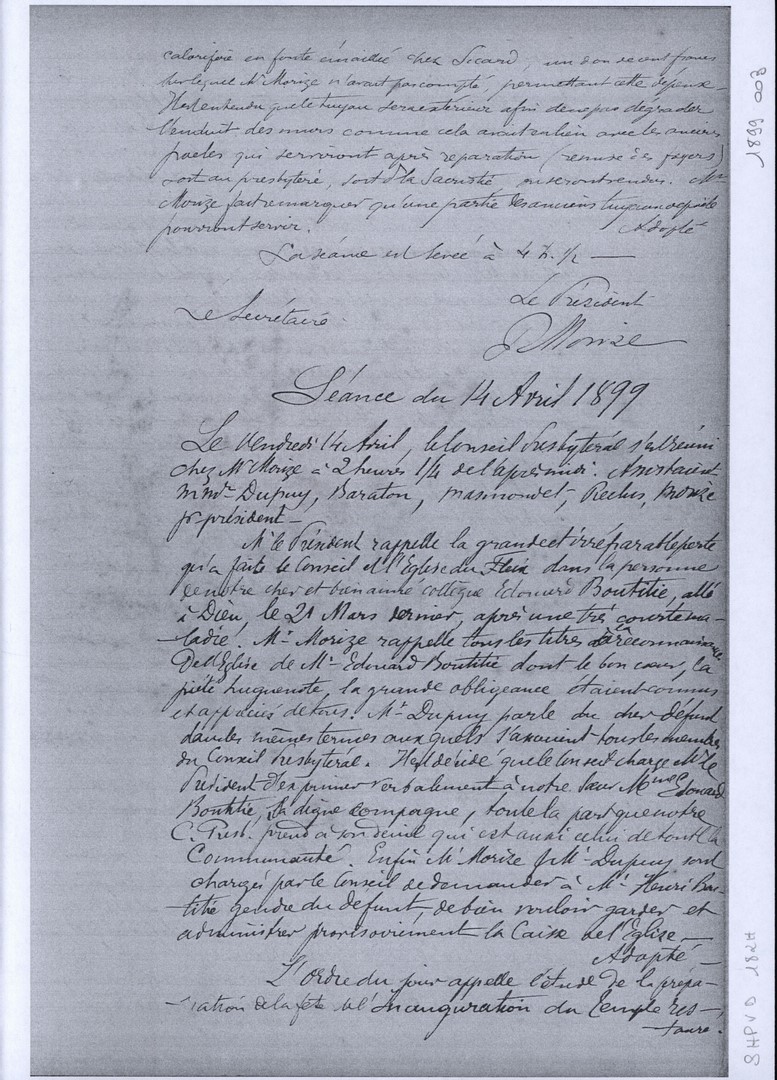 calorifère en fonte émaillée chez Sicard, un don de cent francs
sur lequel Mr Morize n'avait pas compté, permettant cette dépense.
Il est entendu que le tuyau sera extérieur afin de ne pas dégrader
l'enduit des murs comme cela avait eu lieu avec les anciens
poêles qui serviront après réparation (remise des foyers)
soit au presbytère, soit à la Sacristie, ou seront vendus. Mr
Morize fait remarquer qu'une partie des anciens tuyaux
pourront servir. Adopté
La séance est levée à 4 h. 1/2 —
Le Président
Le Secrétaire.
P Morize
Séance du 14 Avril 1899
Le Vendredi 14 Avril, le Conseil Presbytéral s'est réuni
chez Mr Morize à 2 heures 1/4 de l'après midi. Assistaient
MMrs Dupuy, Baraton, Masmondet, Reclus, Morize
pr président —
Mr le Président rappelle la grande et irréparable perte
qu'a faite le Conseil et l'Eglise du Fleix dans la personne
de notre cher et bien aimé collègue Edouard Boutitie, allé
à Dieu, le 21 Mars dernier, après une très courte ma-
-ladie. Mr Morize rappelle tous les titres à la reconnaissance
De l'Eglise de Mr Edouard Boutitie dont le bon cœur, la
piété huguenote, la grande obligeance étaient connus
et appréciés de tous. Mr Dupuy parle du cher défunt
dans les mêmes termes auxquels s'associent tous les membres
du Conseil Presbytéral. Il est décidé que le Conseil charge Mr le
Président d'exprimer verbalement à notre Sœur Mme Edouard
Boutitie, sa digne compagne, toute la part que notre
C. Pres. prend à son deuil qui est aussi celui de toute la
Communauté. Enfin Mr Morize & Mr Dupuy sont
chargés par le Conseil de demander à Mr Henri Bou-
-titie gendre du défunt, de bien vouloir garder et
administrer provisoirement la Caisse de l'Eglise —
Adopté —
L'ordre du jour appelle l'étude de la prépa-
-ration de la fête de l'inauguration du Temple res-
-tauré.
1899 003
SHPVD 182H